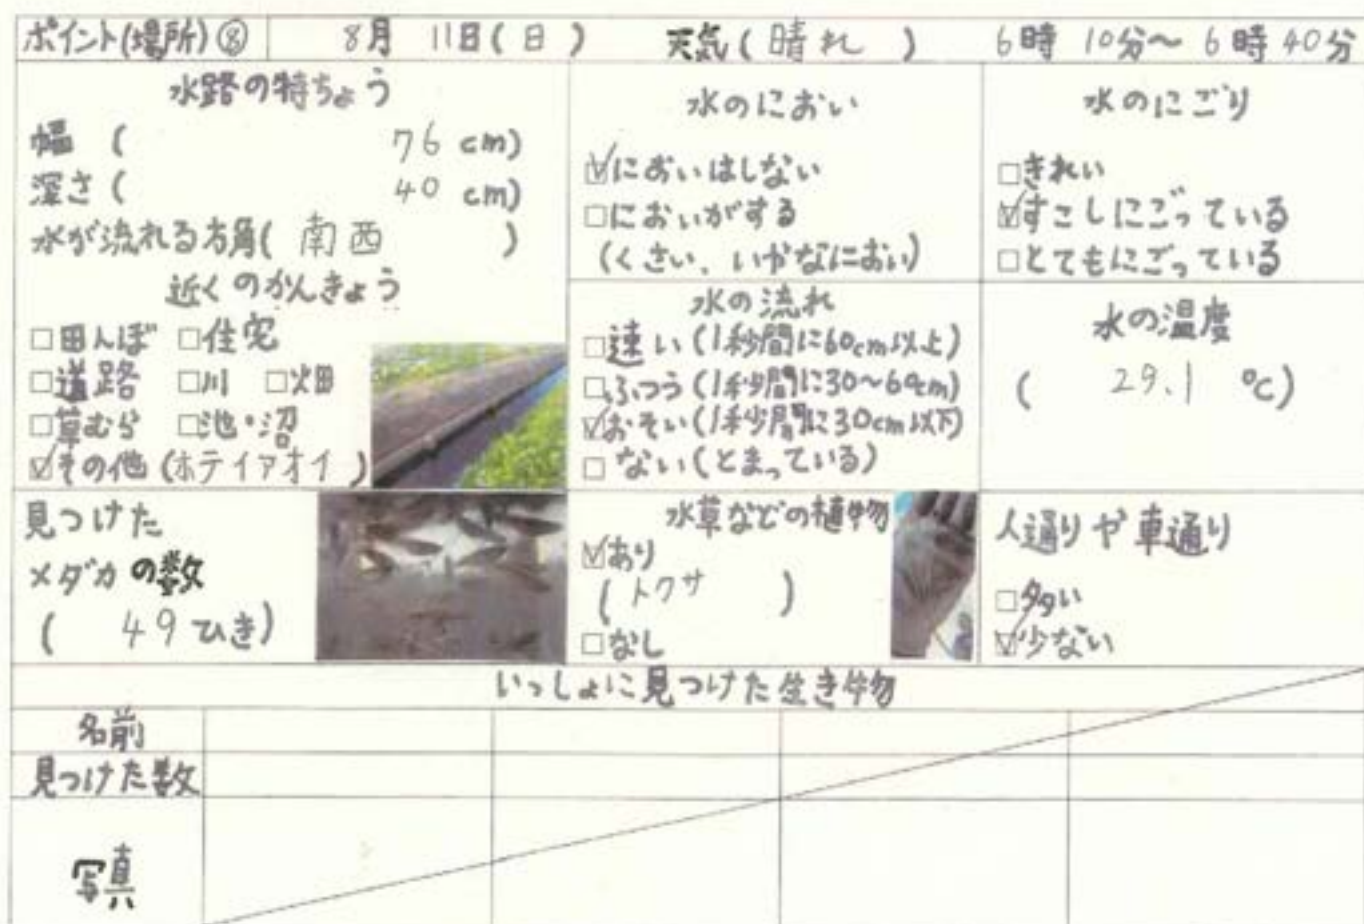 ポイント(場所)⑧ 8月 11日(日) 天気(晴れ) 6時10分〜6時40分
水路の特ちょう
幅 ( 76 cm)
深さ ( 40 cm)
水が流れる方角( 南西 )
近くのかんきょう
□田んぼ □住宅
□道路 □川 □畑
□草むら □池・沼
☑その他 (ホテイアオイ)
水のにおい
☑においはしない
□においがする
(くさい、いがなにおい)
水のにごり
□きれい
☑すこしにごっている
□とてもにごっている
水の流れ
□速い(1秒間に60cm以上)
□ふつう(1秒間に30〜60cm)
☑おそい(1秒間に30cm以下)
□ない(とまっている)
水の温度
( 29.1 ℃)
見つけた
メダカの数
( 49ひき)
水草などの植物
☑あり
(トクサ )
□なし
人通りや車通り
□多い
☑少ない
いっしょに見つけた生き物
名前
見つけた数
写真